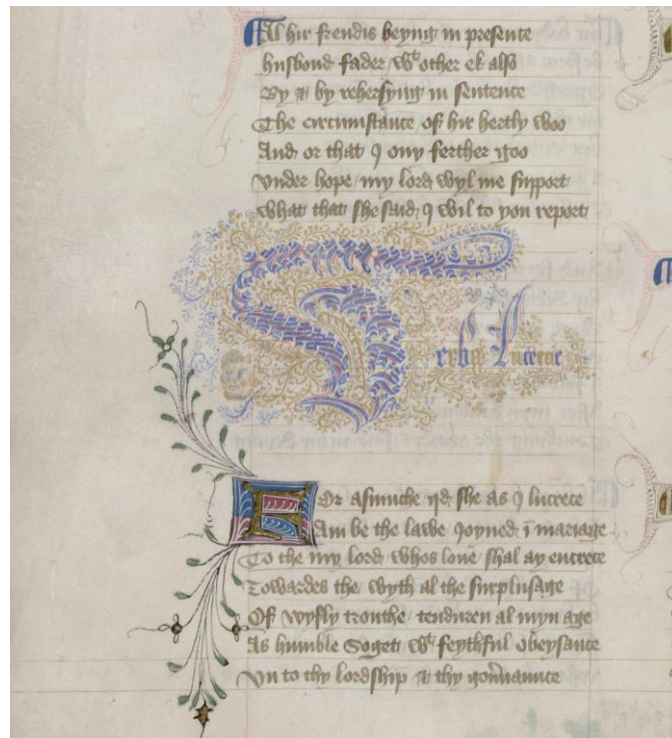 Al hir frendis beyng in presente
husbond fader wt other ek also
By & by rehersyng in sentence
The circumstance of hir hertly woo
And or that I ony ferther goo
vnder hope my lord wyl me support
what that she said I wil to you report
Verba Lucrecie
For asmuche qd she as I lucrece
Am be the lawe Joyned ī mariage
To the my lord whos loue shal ay encrece
Towardes the wyth al the surplusage
Of wyfly trouthe tenduren al myn age
As humble Soget wt feythful obeysance
Vn to thy lordship & thy gou̅nance